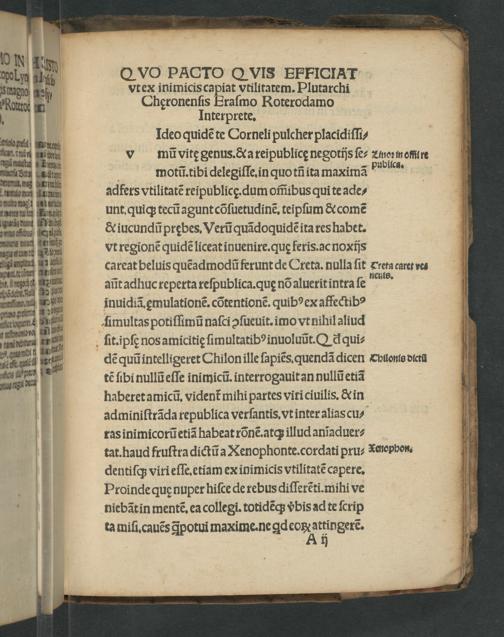 QVO PACTO QVIS EFFICIAT
vt ex inimicis capiat vtilitatem. Plutarchi
Chęronensis Erasmo Roterodamo
Interprete.
Ideo quidẽ te Corneli pulcher placidissi⸗
v mũ vitę genus. & a reipublicę negotijs se⸗
motũ. tibi delegisse, in quo tñ ita maximã
adfers vtilitatẽ reipublicę. dum om̃ibus qui te ade⸗
unt, quiq; tecũ agunt cõsuetudinẽ. teipsum & comẽ
& iucundũ prębes. Verũ quãdoquidẽ ita res habet.
vt regionẽ quidẽ liceat inuenire. quę feris. ac noxijs
careat beluis quẽadmodũ ferunt de Creta. nulla sit
aũt adhuc reperta respublica. quę nõ aluerit intra se
inuidiã, ęmulationẽ. cõtentionẽ. quibꝰ ex affectibꝰ
simultas potissimũ nasci ɔsueuit. imo vt nihil aliud
sit. ipsę nos amicitię simultatibꝰ inuoluũt. Q đ qui⸗
dẽ quũ intelligeret Chilon ille sapiẽs, quendã dicen
tẽ sibi nullũ esse inimicũ. interrogauit an nullũ etiã
haberet amicũ, videnť mihi partes viri ciuilis. & in
administrãda republica versantis, vt inter alias cu⸗
ras inimicorũ etiã habeat rõnẽ. atq; illud aniaduer⸗
tat. haud frustra dictũ a Xenophonte. cordati pru⸗
dentisq; viri esse. etiam ex inimicis vtilitatẽ capere.
Proinde quę nuper hisce de rebus disserẽti. mihi ve
niebãt in mentẽ, ea collegi. totidẽq; v̉bis ad te scrip
ta misi, cauẽs q̃potui maxime. ne qd eoꝝ attingerẽ.
A ij
Creta caret ve⸗
nenis.
Chilonis dictũ
Xenophon.